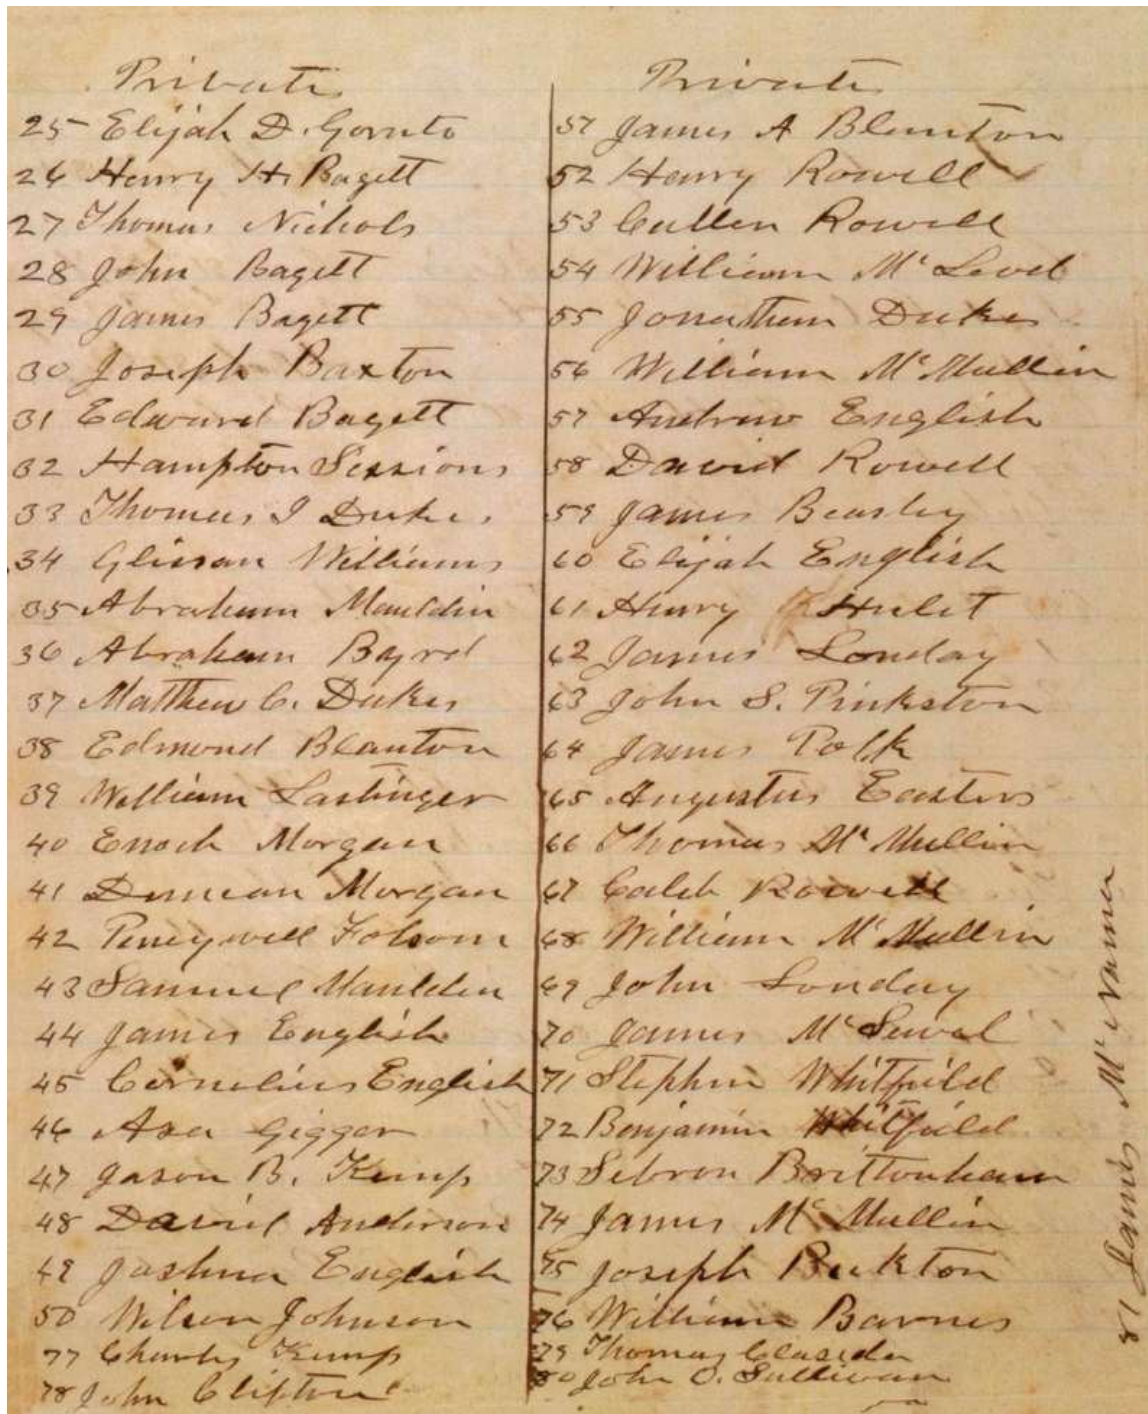 Privates
25 Elijah D. Gornto
26 Henry H. Bagett
27 Thomas Nichols
28 John Bagett
29 James Bagett
30 Joseph Baxton
31 Edward Bagett
32 Hampton Sessions
33 Thomas I Dukes
34 Glissan Williams
35 Abraham Mauldin
36 Abraham Bayrd
37 Matthew C. Dukes
38 Edmond Blanton
39 William Lastinger
40 Enoch Morgan
41 Duncan Morgan
42 Pennywell Folsom
43 Samuel Maulden
44 James English
45 Cornelius English
46 Asa Gigger
47 Jason B. Kemp
48 David Anderson
49 Joshua English
50 Wilson Johnson
77 Charles Kemp
78 John Clifton
Privates
51 James A Blanton
52 Henry Rowell
53 Cullen Rowell
54 William Mc Leod
55 Jonathan Dukes
56 William Mc Mullin
57 Andrew English
58 David Rowell
59 James Beasley
60 Elijah English
61 Henry Hulit
62 James Londay
63 John S. Pinkston
64 James Polk
65 Augustus Easters
66 Thomas Mc Mullin
67 Caleb Rowell
68 William Mc Mullin
69 John Londay
70 James Mc
71 Stephen Whitfield
72 Benjamin Whitfield
73 Sebron Brittonham
74 James Mc Mullin
75 Joseph Buckton
76 William Barnes
79 Thomas
80 John O. Sullivan
81 James Mc Namer